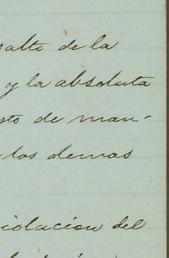 salte de la
y la absoluta
sto de man-
los demas
violacion del